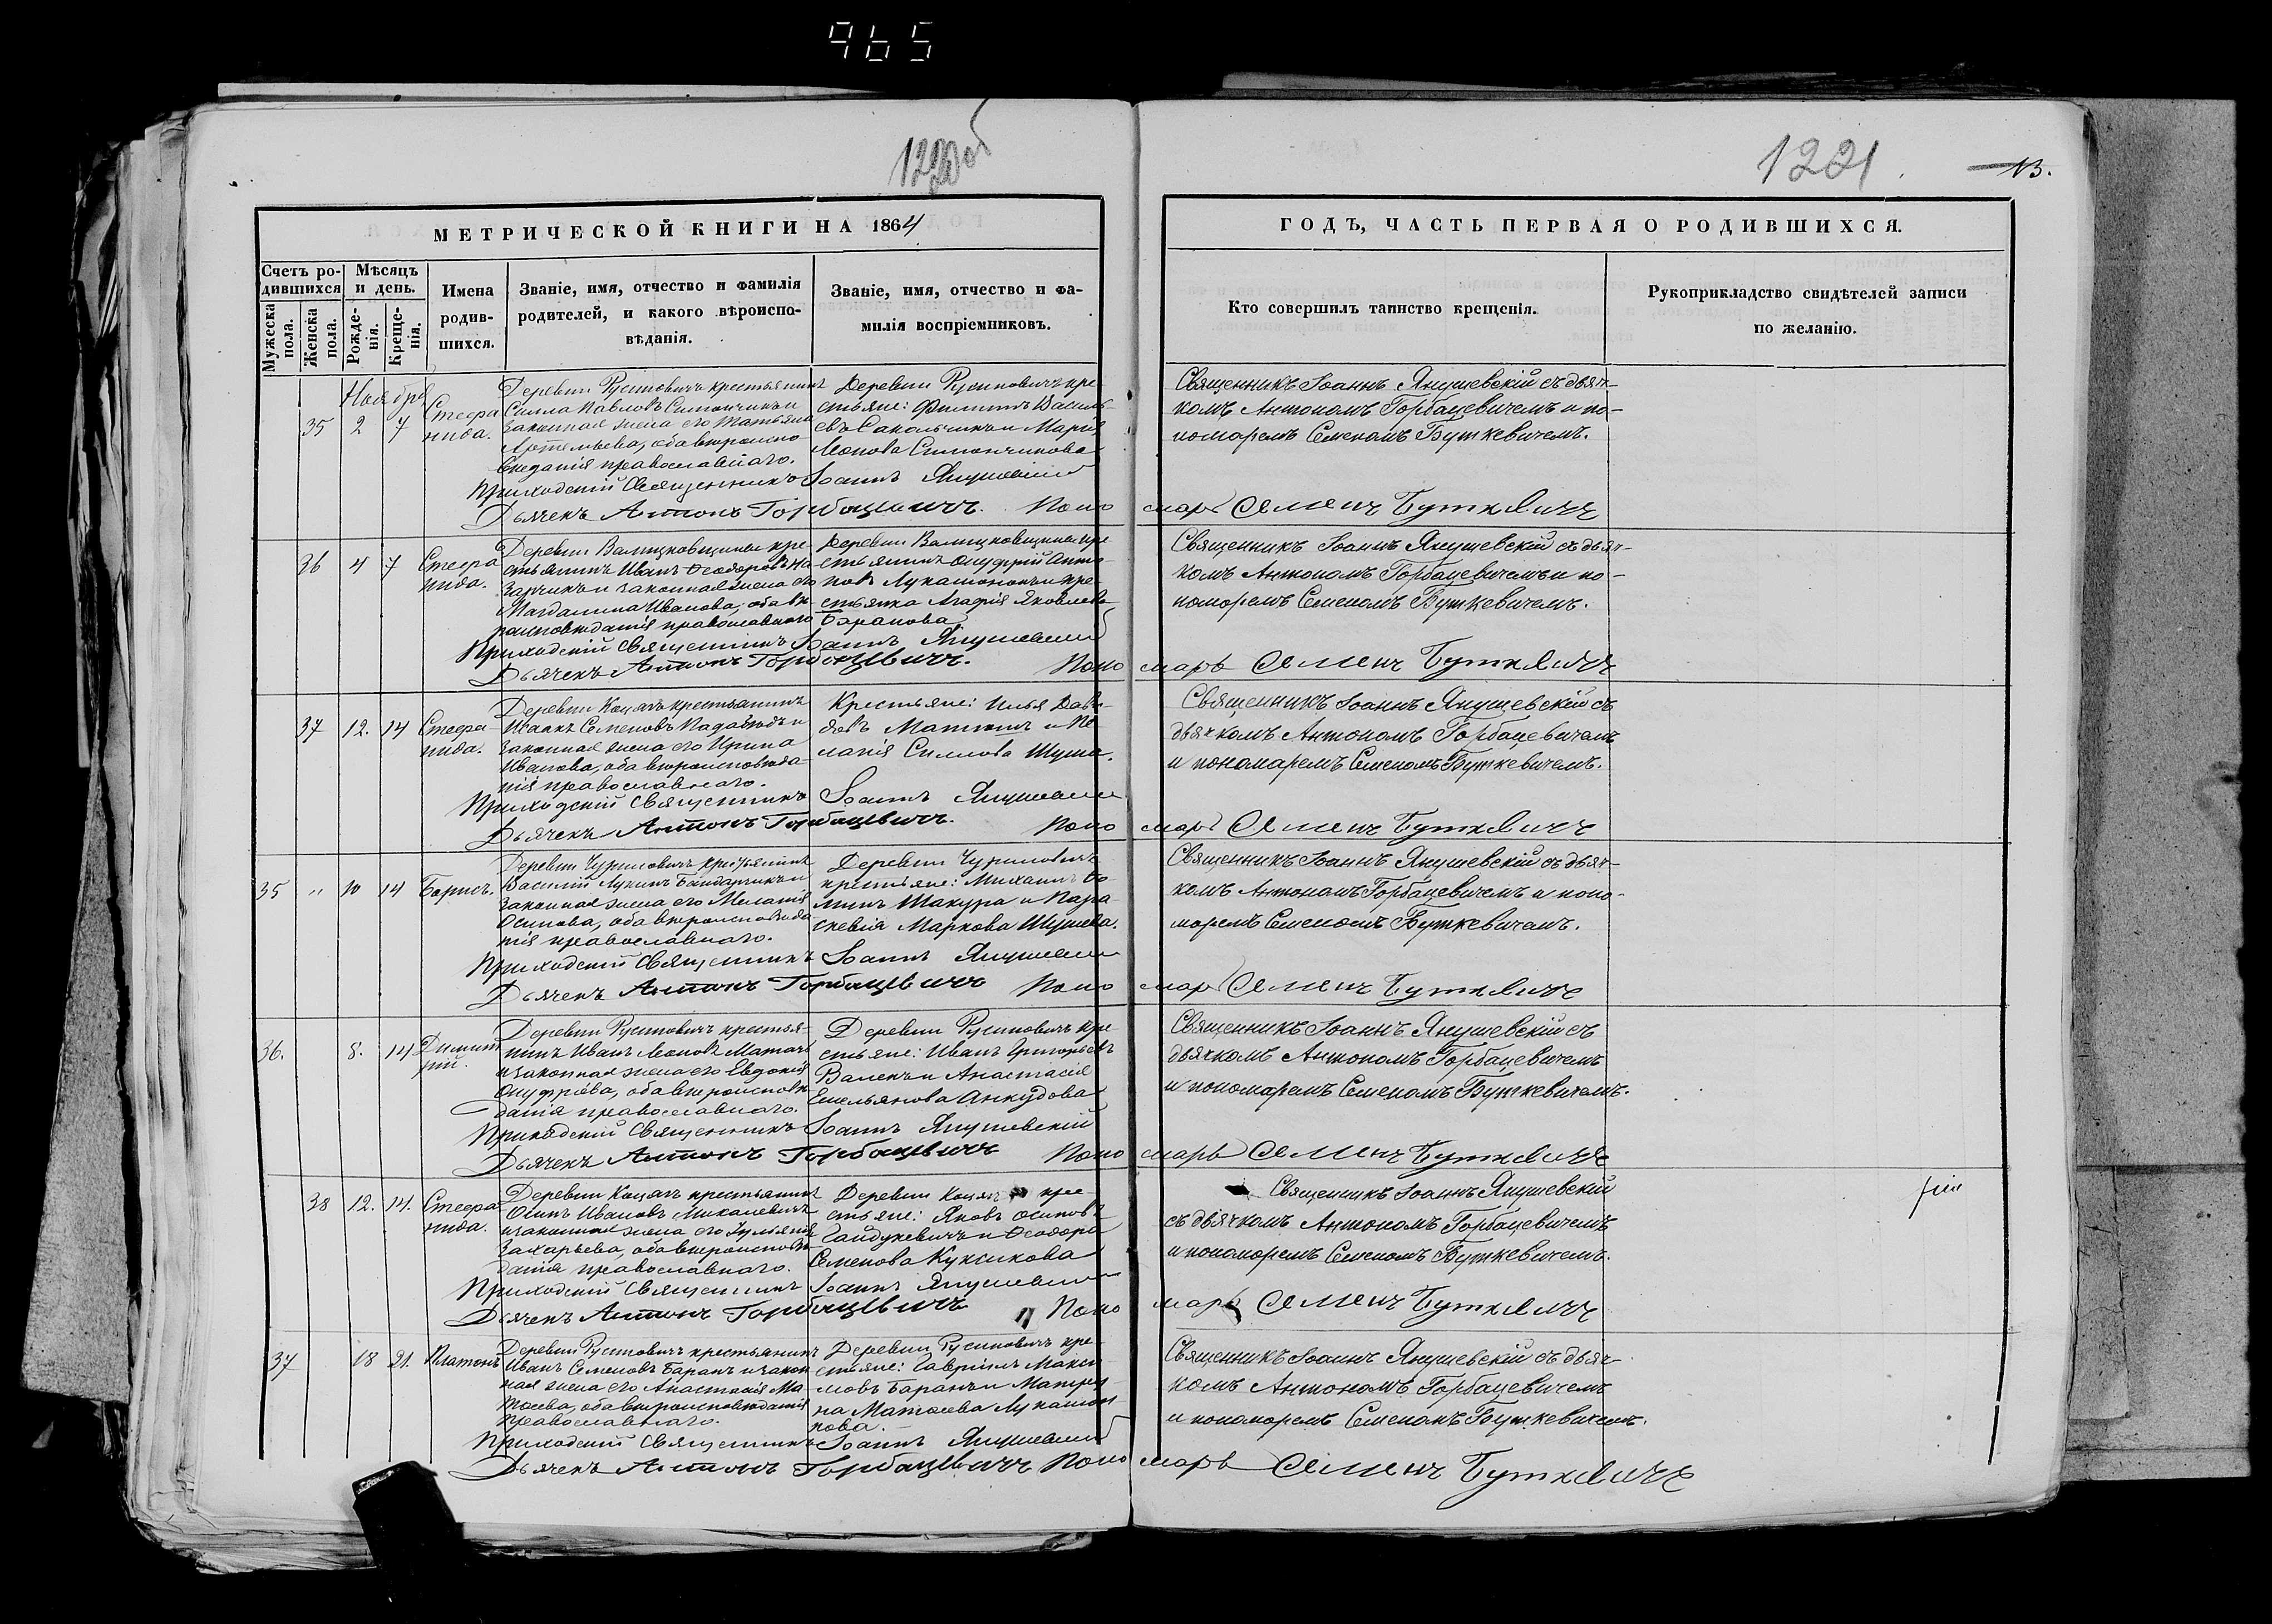 965
1220 об
1221
13.
МЕТРИЧЕСКОЙ КНИГИ НА 1864
ГОДЪ, ЧАСТЬ ПЕРВАЯ О РОДИВШИХСЯ.
Счетъ ро-
дившихся
Мужеска пола.
Женска пола.
Мѣсяцъ
и день.
Рожде-
нія.
Креще-
нія.
Имена
родив-
шихся.
Званіе, имя, отчество и фамилія
родителей, и какого вѣроиспо-
вѣданія.
Званіе, имя, отчество и фа-
милія воспріемниковъ.
Кто совершилъ таинство крещенія.
Рукоприкладство свидѣтелей записи
по желанію.
Ноябрь
35 2 7
Стефа
нида.
Деревни Русиновичъ крестьянинъ
Силла Павловъ Симончикъ и
законная жена его Татьяна
Артемьева, оба вѣроиспо-
вѣданія православнаго.
Деревни Русиновичъ кре-
стьяне: Филиппъ Василь-
евъ Сакольчикъ и Марія
Леонова Симончикова
Священникъ Іоаннъ Янушевскій съ дьяч-
комъ Антономъ Горбацевичемъ и по-
номаремъ Семеномъ Буткевичемъ.
Приходскій Священникъ Іоаннъ Янушевскій
Дьячекъ Антонъ Горбацевичъ. Поно марь Семенъ Буткевичъ
36 4 7
Стефа
нида.
крестьянинъ Иванъ Ѳеодоровъ
и законная жена его
Магдалина Иванова, оба вѣ-
роисповѣданія православнаго
стьянинъ Онуфрій Анто-
новъ Лукашонокъ и кре-
стьянка Агафія Яковлева
Баранова
Священникъ Іоаннъ Янушевскій съ дьяч-
комъ Антономъ Горбацевичемъ и по-
номоремъ Семеномъ Буткевичемъ.
Приходскій Священникъ Іоаннъ Янушевскій
Дьячекъ Антонъ Горбацевичъ. Поно марь Семенъ Буткевичъ
37 12. 14
Стефа-
нида.
крестьянинъ
Семеновъ
законная жена его Ирина
Иванова, оба вѣроисповѣда-
нія православнаго.
Крестьяне: Илья Дави-
довъ и Пе
лагія Силлова Шума.
Священникъ Іоаннъ Янушевскій съ
дьячкомъ Антономъ Горбацевичемъ
и пономаремъ Семеномъ Буткевичемъ.
Приходскій Священникъ Іоаннъ Янушевскій
Дьячекъ Антонъ Горбацевичъ. Поно марь Семенъ Буткевичъ
35 " 10 14
Борисъ.
Деревни Чуриловичъ крестьянинъ
Василій Лукинъ Бандарчикъ и
законная жена его Меланія
Осипова, оба вѣроисповѣда
нія православнаго.
Деревни Чуриловичъ
крестьяне: Михаилъ Ѳо
минъ Шакура и Пара-
скевія Маркова Шушева.
Священникъ Іоаннъ Янушевскій съ дьяч-
комъ Антономъ Горбацевичемъ и поно-
моремъ Семеномъ Буткевичемъ.
Приходскій Священникъ Іоаннъ Янушевскій
Дьячекъ Антонъ Горбацевичъ Поно марь Семенъ Буткевичъ
36. 8. 14
Димит
рій.
Деревни Русиновичъ крестья-
нинъ Иванъ Леоновъ
и законная жена его Евдокія
Онуфріева, оба вѣроисповѣ
данія православнаго.
Деревни Русиновичъ кре-
стьяне: Иванъ Григорьевъ
и Анастасія
Емельянова Анкудова
Священникъ Іоаннъ Янушевскій съ
дьячкомъ Антономъ Горбацевичемъ
и пономаремъ Семеномъ Буткевичемъ.
Приходскій Священникъ Іоаннъ Янушевскій
Дьячекъ Антонъ Горбацевичъ Поно марь Семенъ Буткевичъ
38 12. 14.
Стефа
нида.
крестьянинъ
Осипъ Ивановъ Михалевичъ
и законная жена его Іуліанія
Захарьева, оба вѣроисповѣ
данія православнаго.
кре-
стьяне: Яковъ Осиповъ
Гайдукевичъ и Ѳеодора
Семенова Куксикова
Священникъ Іоаннъ Янушевскій
съ дьячкомъ Антономъ Горбацевичемъ
и пономоремъ Семеномъ Буткевичемъ.
Приходскій Священникъ Іоаннъ Янушевскій
Дьячекъ Антонъ Горбацевичъ Поно марь Семенъ Буткевичъ
37 18 21.
Платонъ
Деревни Русиновичъ крестьянинъ
Иванъ Семеновъ Баранъ и закон
ная жена его Анастасія Ма-
тѳеева, оба вѣроисповѣданія
православнаго.
Деревни Русиновичъ кре-
стьяне: Гавріилъ Макси
мовъ Баранъ и Матро-
на Матѳеева Лукашон-
кова.
Священникъ Іоаннъ Янушевскій съ дьяч-
комъ Антономъ Горбацевичемъ
и пономоремъ Семеномъ Буткевичемъ.
Приходскій Священникъ Іоаннъ Янушевскій
Дьячекъ Антонъ Горбацевичъ Поно марь Семенъ Буткевичъ